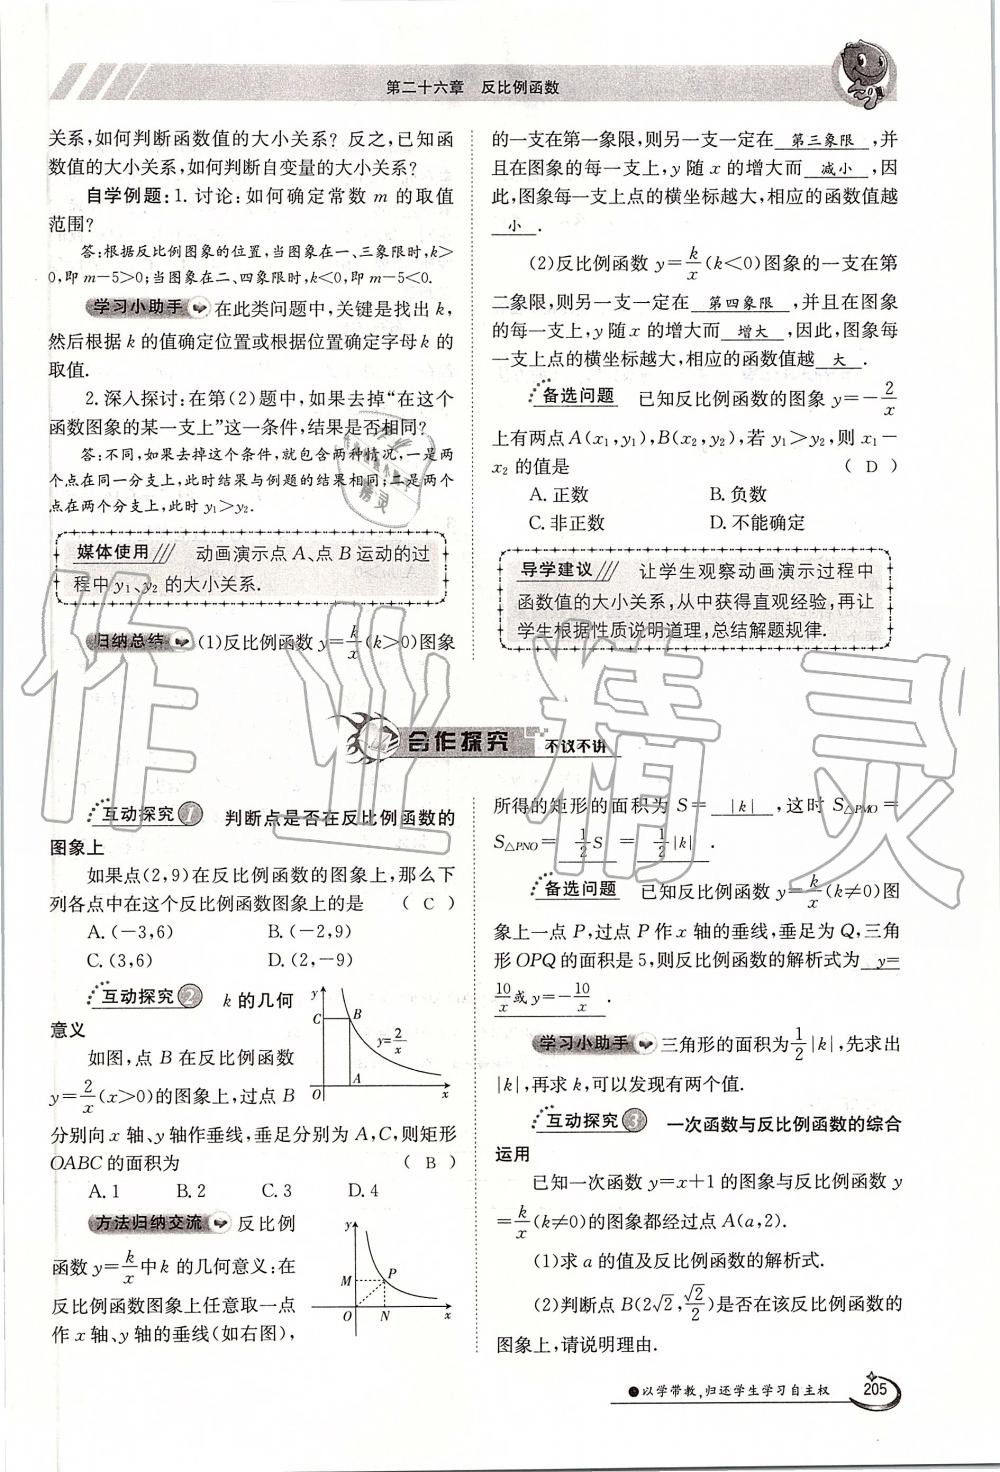 第二十六章 反比例函数
关系,如何判断函数值的大小关系?反之,已知函
数值的大小关系,如何判断自变量的大小关系?
自学例题:1.讨论:如何确定常数 m 的取值
范围?
答:根据反比例图象的位置,当图象在一、三象限时,k>
0,即 m-5>0;当图象在二、四象限时,k<0,即 m-5<0.
学习小助手 在此类问题中,关键是找出 k,
然后根据 k 的值确定位置或根据位置确定字母 k 的
取值.
2.深入探讨:在第(2)题中,如果去掉“在这个
函数图象的某一支上”这一条件,结果是否相同?
答:不同,如果去掉这个条件,就包含两种情况,一是两
个点在同一分支上,此时结果与例题的结果相同;二是两个
点在两个分支上,此时 y₁>y₂.
媒体使用 动画演示点 A、点 B 运动的过
程中 y₁、y₂ 的大小关系.
归纳总结 (1)反比例函数 y=k/x(k>0)图象
的一支在第一象限,则另一支一定在 第三象限 ,并
且在图象的每一支上,y 随 x 的增大而 减小 ,因
此,图象每一支上点的横坐标越大,相应的函数值越
小 .
(2)反比例函数 y=k/x(k<0)图象的一支在第
二象限,则另一支一定在 第四象限 ,并且在图象
的每一支上,y 随 x 的增大而 增大 ,因此,图象每
一支上点的横坐标越大,相应的函数值越 大 .
备选问题 已知反比例函数的图象 y=-2/x
上有两点 A(x₁,y₁),B(x₂,y₂),若 y₁>y₂,则 x₁-
x₂ 的值是 ( D )
A.正数 B.负数
C.非正数 D.不能确定
导学建议 让学生观察动画演示过程中
函数值的大小关系,从中获得直观经验,再让
学生根据性质说明道理,总结解题规律.
合作探究 不议不讲
互动探究1 判断点是否在反比例函数的
图象上
如果点(2,9)在反比例函数的图象上,那么下
列各点中在这个反比例函数图象上的是 ( C )
A.(-3,6) B.(-2,9)
C.(3,6) D.(2,-9)
互动探究2 k 的几何
意义
如图,点 B 在反比例函数
y=2/x(x>0)的图象上,过点 B
分别向 x 轴、y 轴作垂线,垂足分别为 A,C,则矩形
OABC 的面积为 ( B )
A.1 B.2 C.3 D.4
y C B y=2/x O A x
方法归纳交流 反比例
函数 y=k/x中 k 的几何意义:在
反比例函数图象上任意取一点
作 x 轴、y 轴的垂线(如右图),
y M P O N x
所得的矩形的面积为 S= |k| ,这时 S△PMO=
S△PNO= 1/2 S = 1/2|k| .
备选问题 已知反比例函数 y=k/x(k≠0)图
象上一点 P,过点 P 作 x 轴的垂线,垂足为 Q,三角
形 OPQ 的面积是 5,则反比例函数的解析式为 y=
10/x或 y=-10/x .
学习小助手 三角形的面积为1/2|k|,先求出
|k|,再求 k,可以发现有两个值.
互动探究3 一次函数与反比例函数的综合
运用
已知一次函数 y=x+1 的图象与反比例函数 y
=k/x(k≠0)的图象都经过点 A(a,2).
(1)求 a 的值及反比例函数的解析式.
(2)判断点 B(2√2,√2/2)是否在该反比例函数的
图象上,请说明理由.
●以学带教,归还学生学习自主权
205
作业精灵